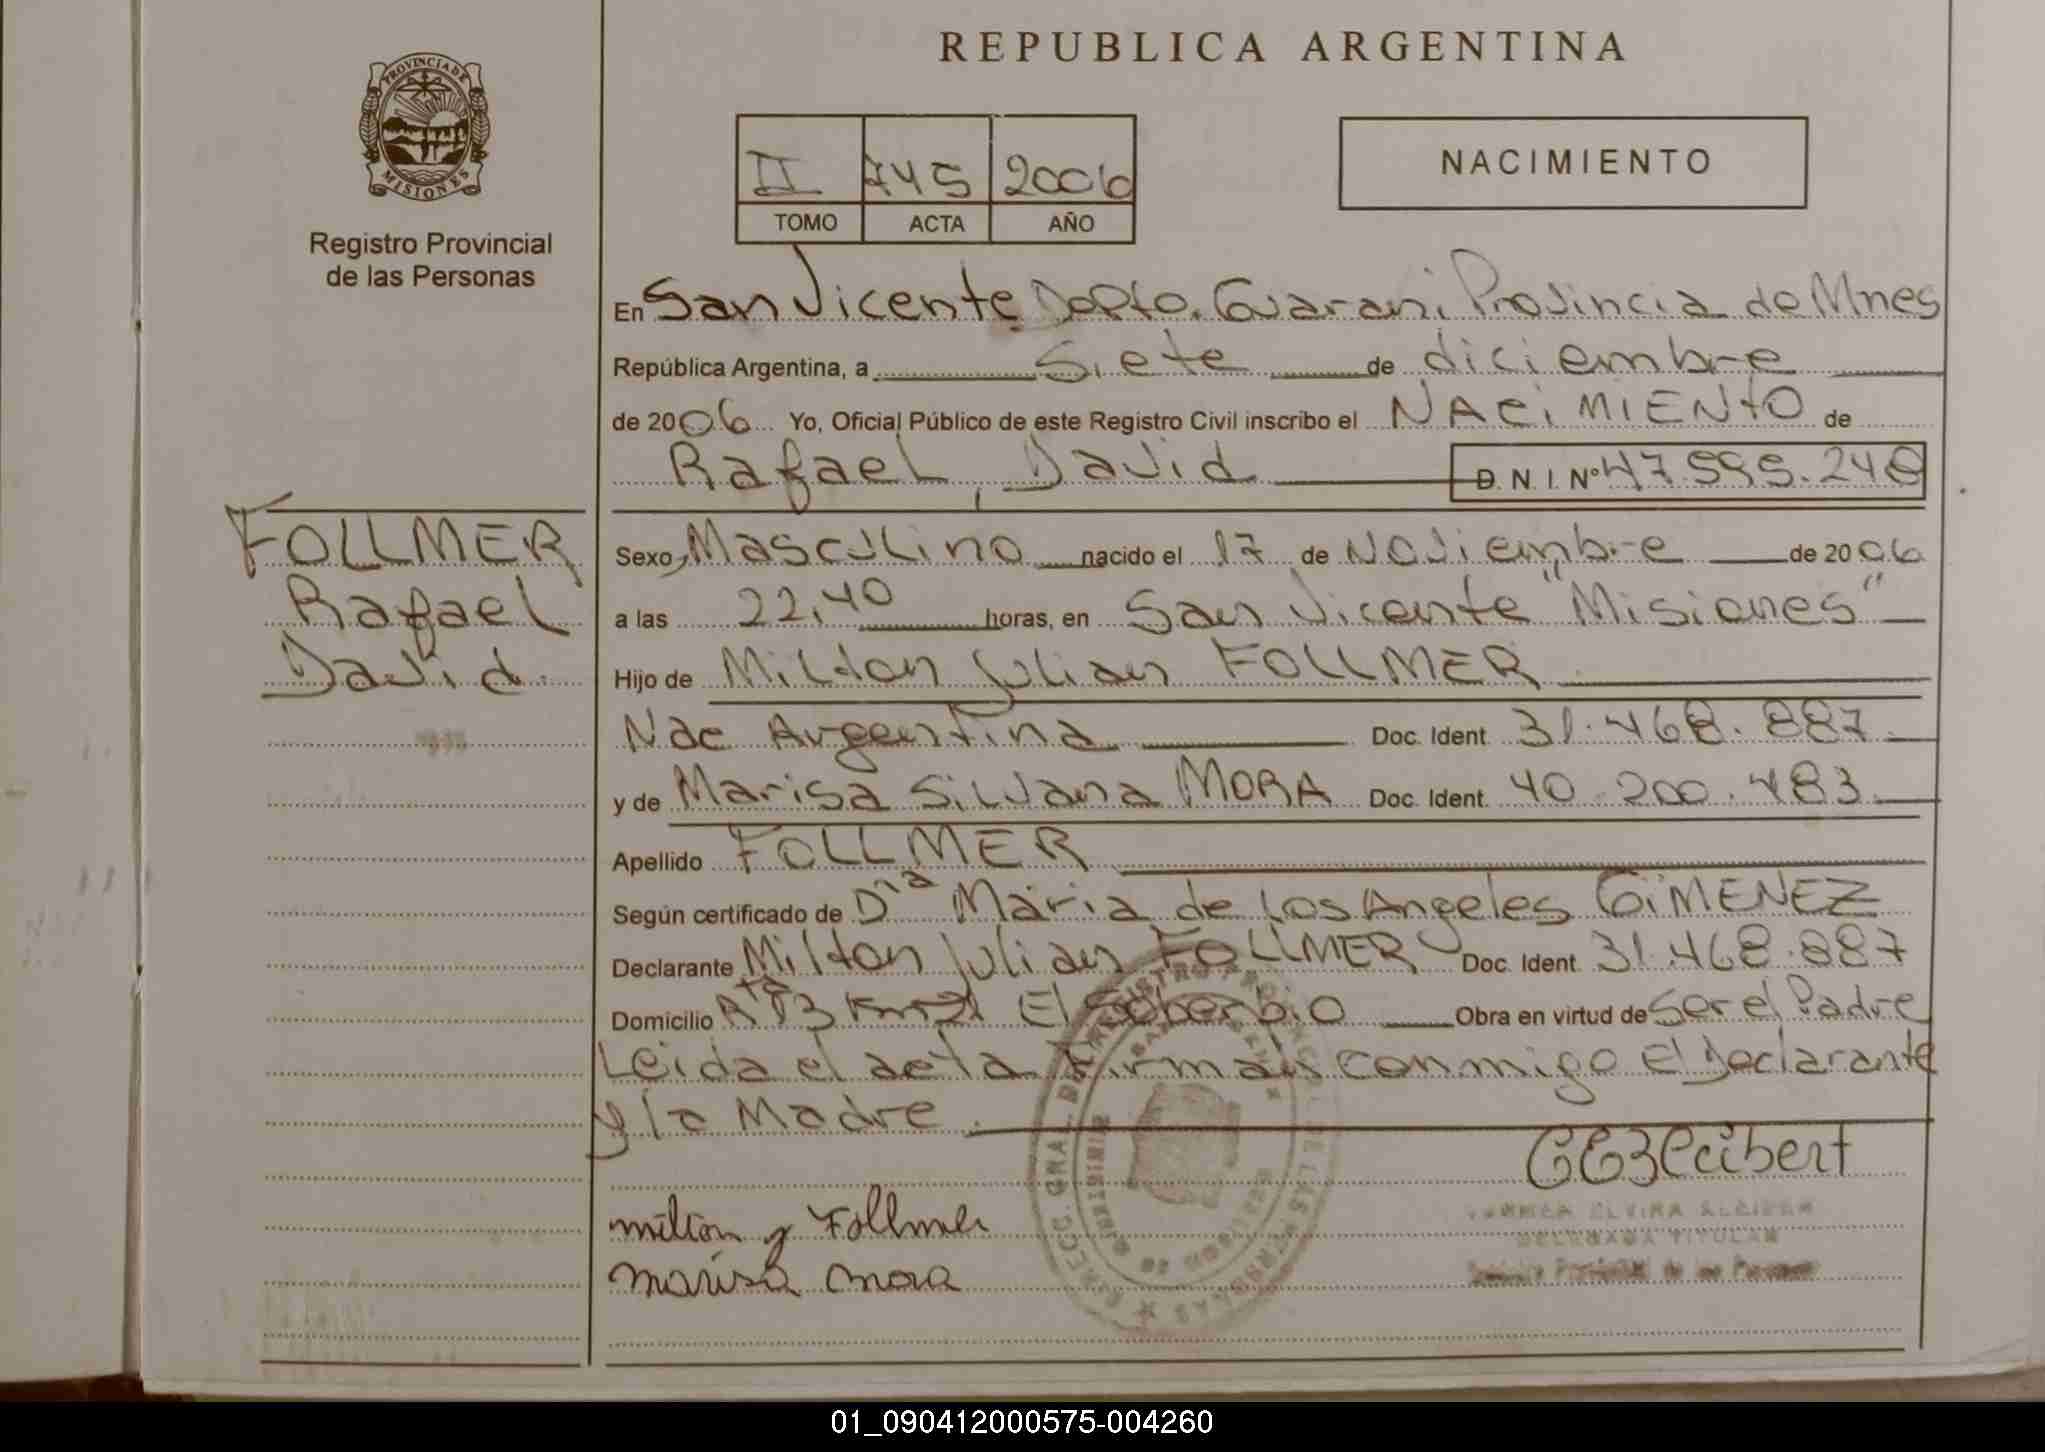 REPUBLICA ARGENTINA
PROVINCIA DE
MISIONES
Registro Provincial
de las Personas
II 745 2006
TOMO ACTA AÑO
NACIMIENTO
En San Vicente Depto. Guarani Provincia de Mnes
República Argentina, a siete de diciembre
de 2006 Yo, Oficial Público de este Registro Civil inscribo el NACIMIENTO de
Rafael, David D. N. I. Nº 47.595.248
FOLLMER
Rafael
David.
Sexo, Masculino nacido el 17 de Noviembre de 2006
a las 22,40 horas, en San Vicente "Misiones"
Hijo de Milton Julian FOLLMER
Nac Argentina Doc. Ident. 31.468.887.
y de Marisa Silvana MORA Doc. Ident. 40.200.483.
Apellido FOLLMER
Según certificado de Dra Maria de Los Angeles GIMENEZ
Declarante Milton Julian FOLLMER Doc. Ident. 31.468.887
Domicilio Rta 13 Km 21 El Soberbio Obra en virtud de Ser el Padre
Leida el acta firman conmigo El Declarante
y la Madre
milton y Follmer
marisa mora
ELVIRA
DELEGADA TITULAR
Provincial de las Personas
01_090412000575-004260